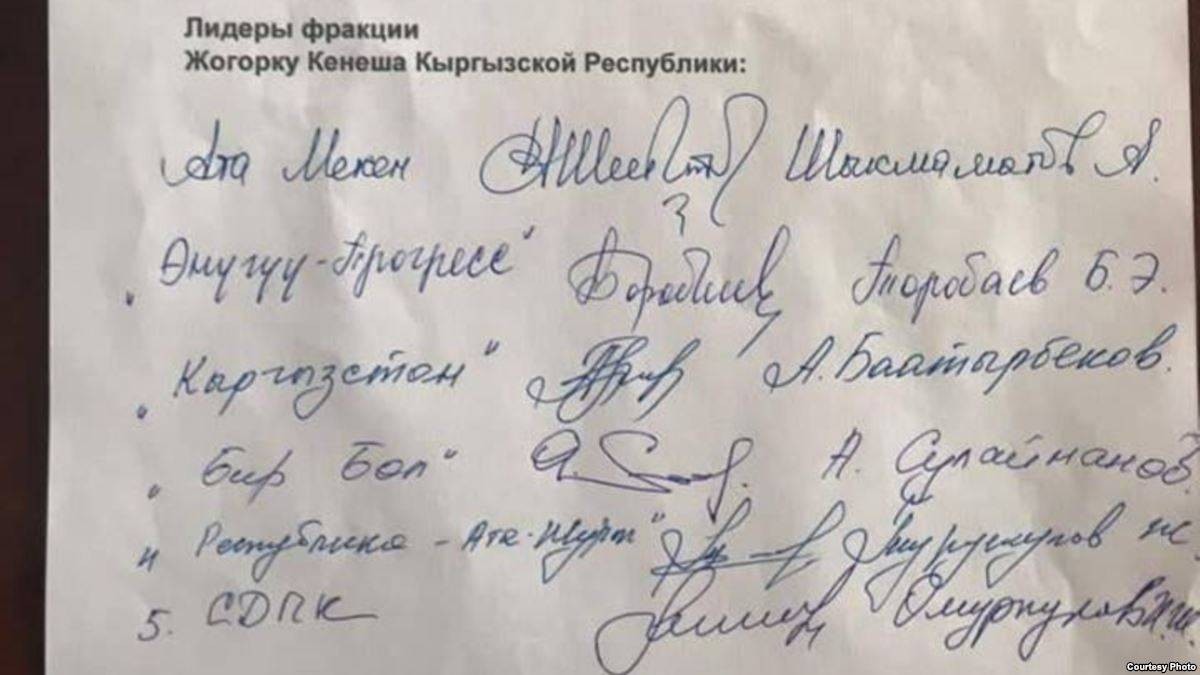 Лидеры фракции
Жогорку Кенеша Кыргызской Республики:
Ата Мекен Шыкмаматов А.
„Өнүгүү-Прогресс“ Торобаев Б.Э.
„Кыргызстон“ А.Баатырбеков.
„Бир Бол“ А. Сулайманов.
„Республика - Ата-Журт“
5. СДПК
Courtesy Photo